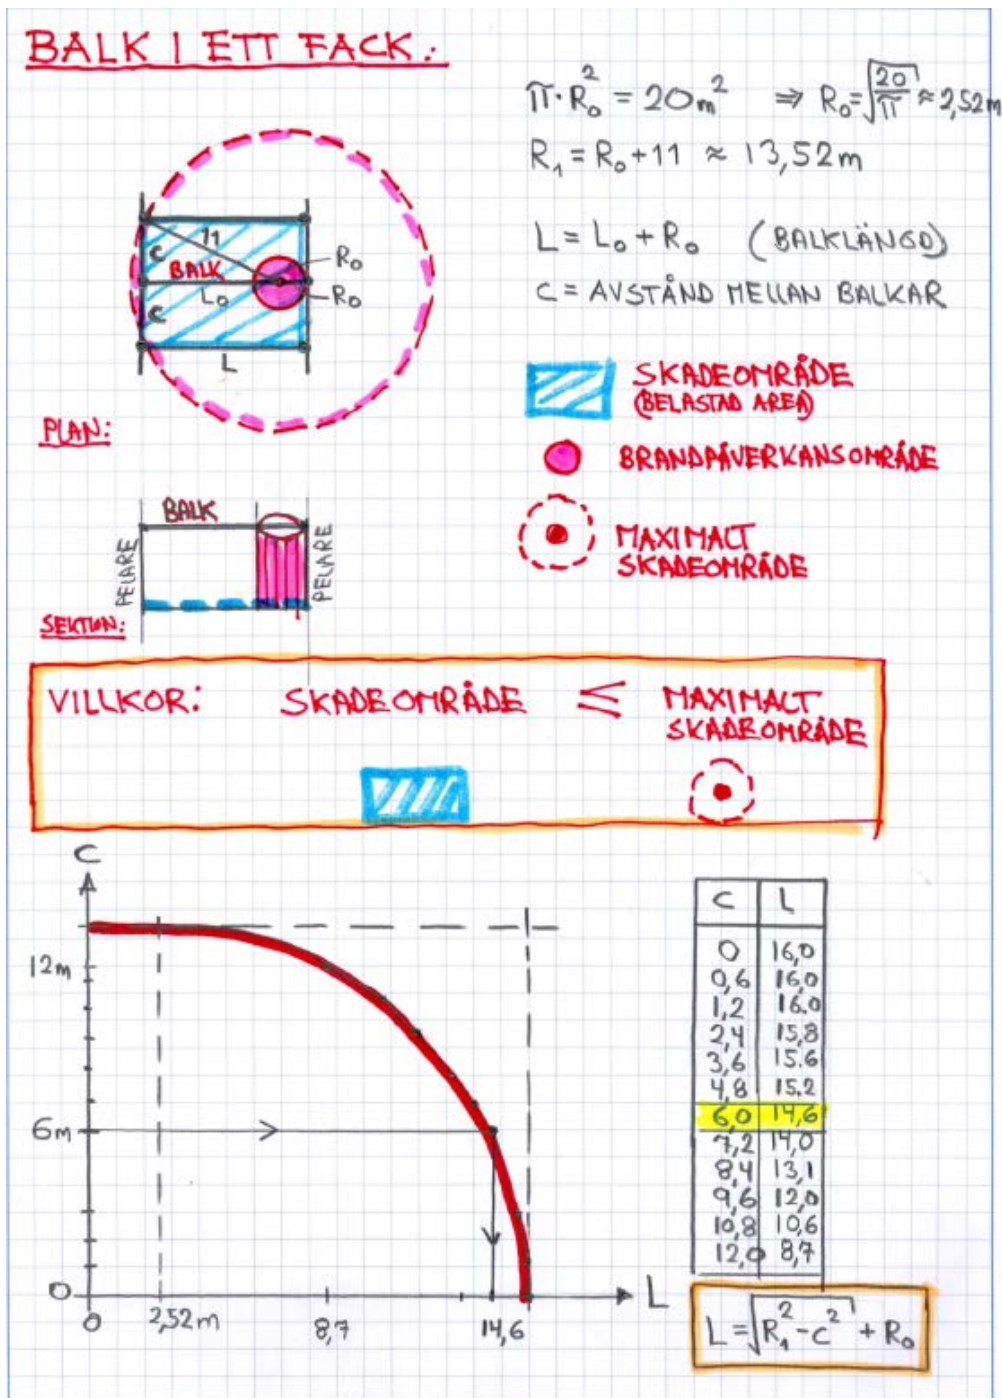 BALK I ETT FACK:
π·R₀² = 20m² ⇒ R₀=√(20/π) ≈ 2,52m
R₁ = R₀+11 ≈ 13,52m
L = L₀ + R₀ (BALKLÄNGD)
C = AVSTÅND MELLAN BALKAR
C
11
BALK
L₀
R₀
R₀
C
L
PLAN:
SKADEOMRÅDE
(BELASTAD AREA)
BRANDPÅVERKANSOMRÅDE
MAXIMALT
SKADEOMRÅDE
BALK
PELARE
PELARE
SEKTION:
VILLKOR: SKADEOMRÅDE ≤ MAXIMALT
SKADEOMRÅDE
C
12m
6m
0
0 2,52m 8,7 14,6
L
C L
0 16,0
0,6 16,0
1,2 16.0
2,4 15,8
3,6 15.6
4,8 15.2
6,0 14,6
7,2 14,0
8,4 13,1
9,6 12,0
10,8 10,6
12,0 8,7
L = √(R₁²-c²) + R₀